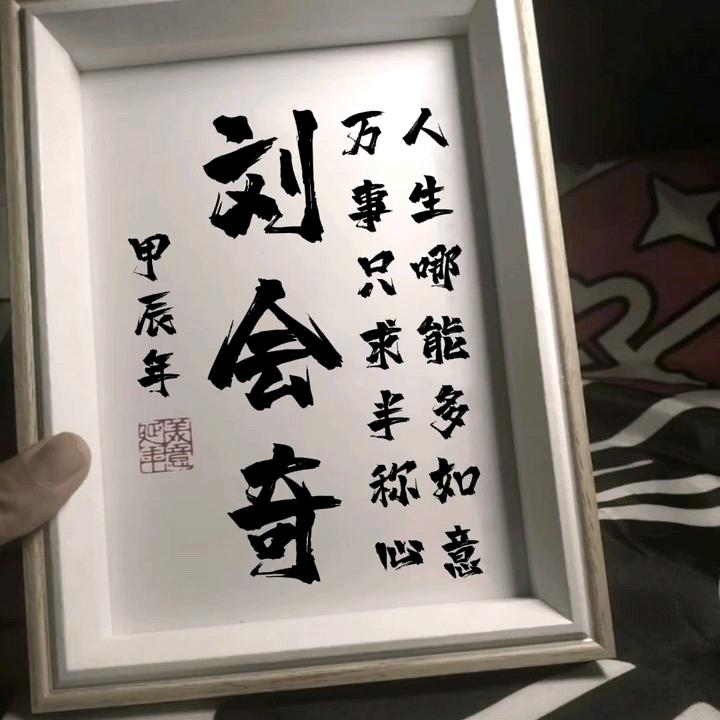 人生哪能多如意
万事只求半称心
刘会奇
甲辰年
美意延年